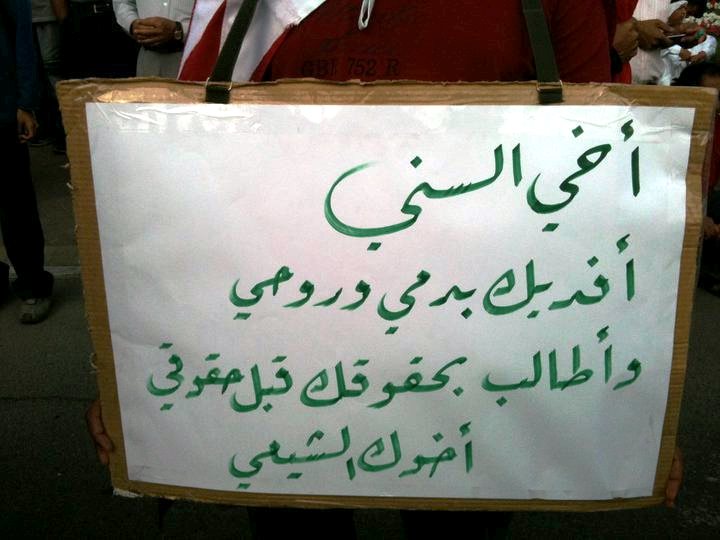 GBI 752 R
أخي السني
أفديك بدمي وروحي
وأطالب بحقوقك قبل حقوقي
أخوك الشيعي